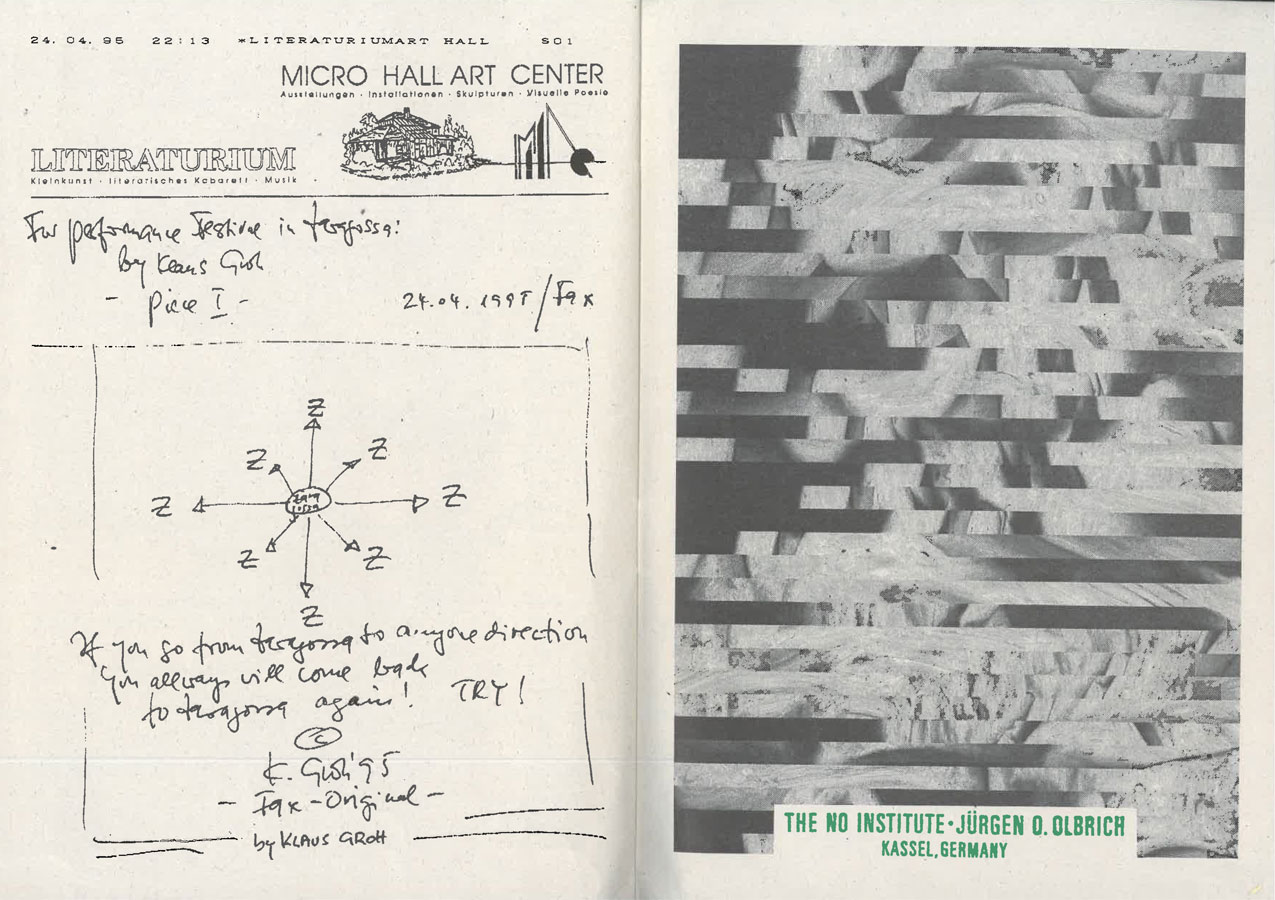 24. 04. 95 22:13 *LITERATURIUMART HALL S01
MICRO HALL ART CENTER
Ausstellungen · Installationen · Skulpturen · Visuelle Poesie
LITERATURIUM
Kleinkunst · literarisches Kabarett · Musik
For performance Festival in taragossa:
by Klaus Groh
- Piece I -
24.04. 1995 / Fax
Z
Z Z
Z zara gossa Z
Z Z
Z
If you go from taragossa to anyone direction
you allways will come back
to taragossa again! TRY!
©
K. Groh '95
- Fax - Original -
by KLAUS GROH
THE NO INSTITUTE · JÜRGEN O. OLBRICH
KASSEL, GERMANY